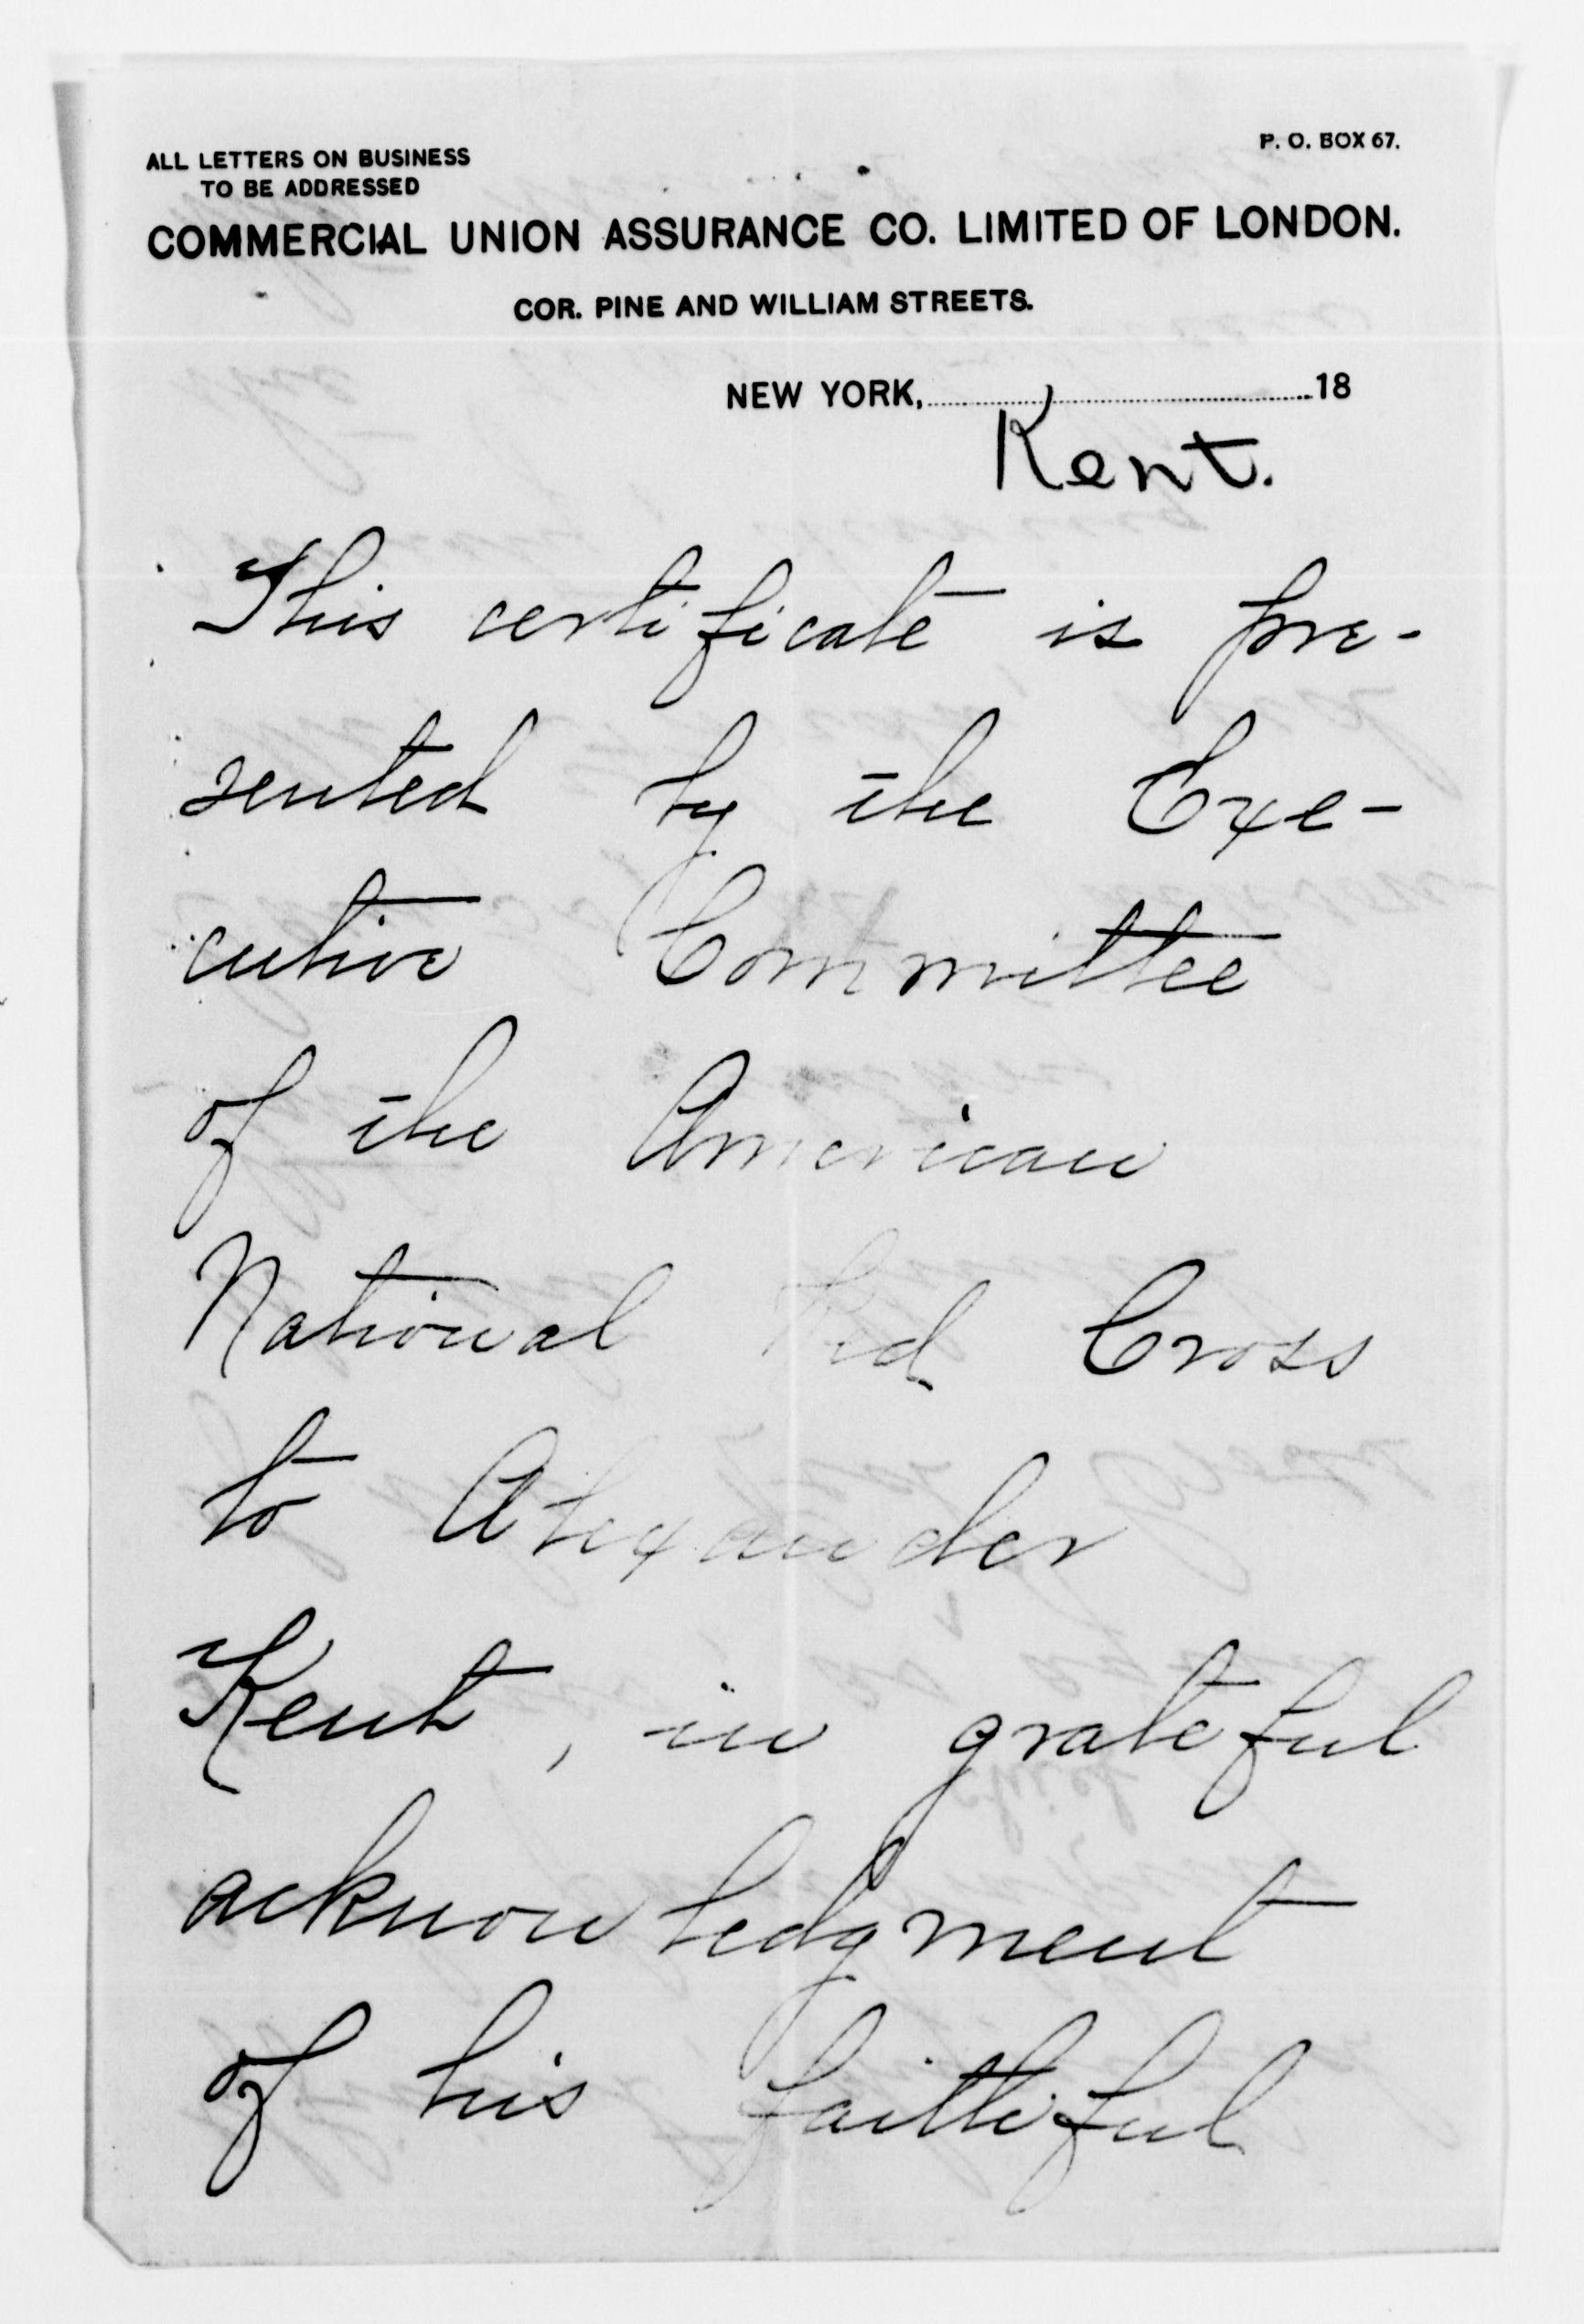 P. O. BOX 67.
ALL LETTERS ON BUSINESS
TO BE ADDRESSED
COMMERCIAL UNION ASSURANCE CO. LIMITED OF LONDON.
COR. PINE AND WILLIAM STREETS.
NEW YORK, 18
Kent.
This certificate is pre-
sented by the Exe-
cutive Committee
of the American
National Red Cross
to Alexander
Kent, in grateful
acknowledgment
of his faithful